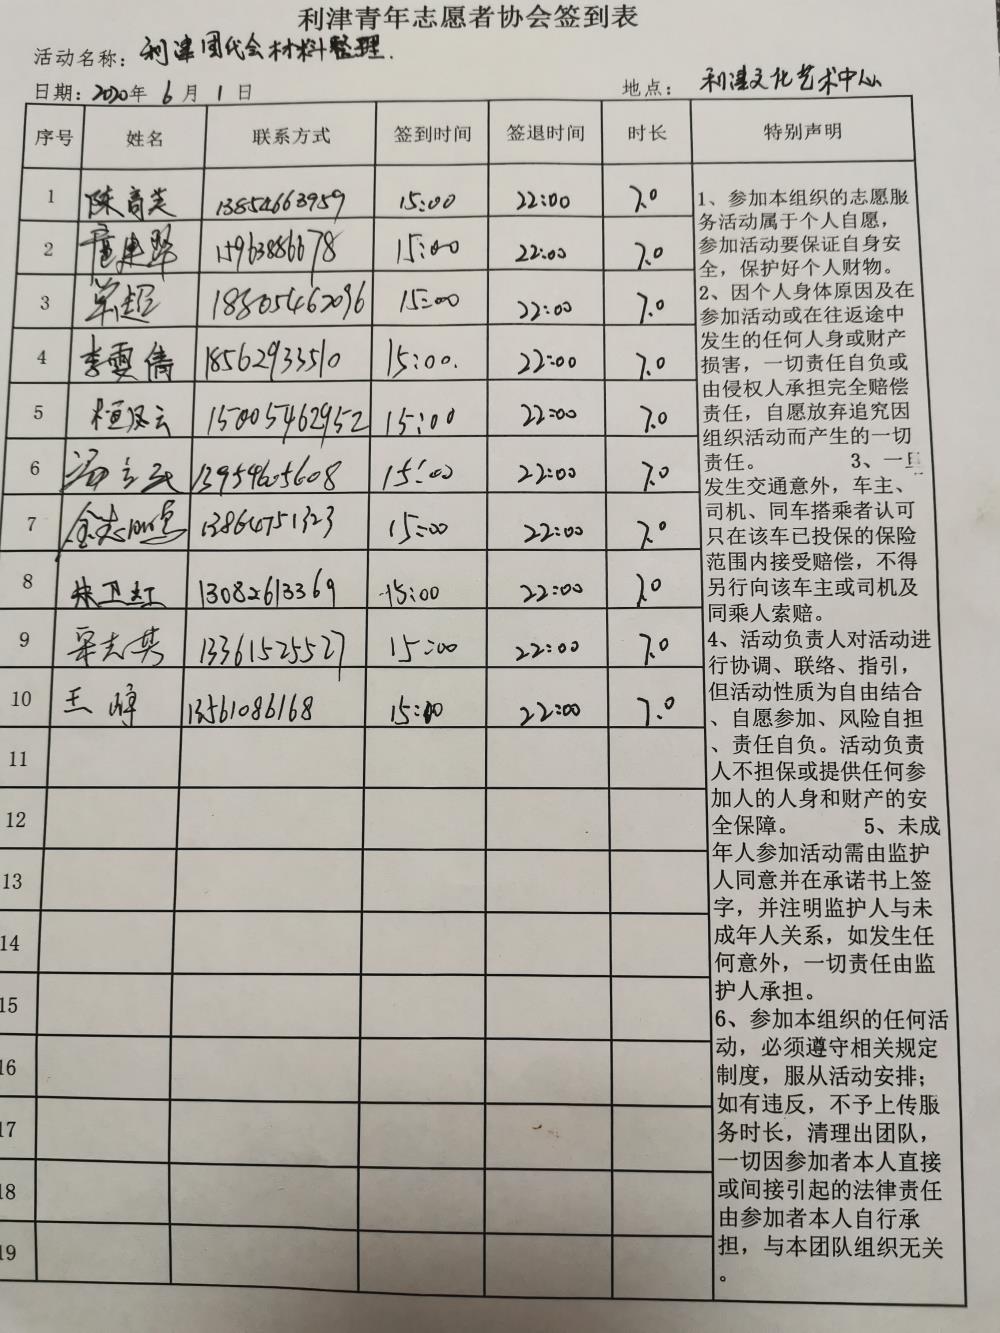 利津青年志愿者协会签到表
活动名称：利津团代会材料整理.
日期：2020年 6 月 1 日 地点：利津文化艺术中心
序号 姓名 联系方式 签到时间 签退时间 时长 特别声明
1 13854663959 15:00 22:00 7.0
2 15963886678 15:00 22:00 7.0
3 单超 18805462096 15:00 22:00 7.0
4 李雯倩 18562933510 15:00. 22:00 7.0
5 桓风云 15005462952 15:00 22:00 7.0
6 13954605608 15:00 22:00 7.0
7 13864751323 15:00 22:00 7.0
8 朱卫红 13082613369 15:00 22:00 7.0
9 13361525527 15:00 22:00 7.0
10 王 13561086168 15:00 22:00 7.0
11
12
13
14
15
16
17
18
19
1、参加本组织的志愿服
务活动属于个人自愿，
参加活动要保证自身安
全，保护好个人财物。
2、因个人身体原因及在
参加活动或在往返途中
发生的任何人身或财产
损害，一切责任自负或
由侵权人承担完全赔偿
责任，自愿放弃追究因
组织活动而产生的一切
责任。 3、一旦
发生交通意外，车主、
司机、同车搭乘者认可
只在该车已投保的保险
范围内接受赔偿，不得
另行向该车主或司机及
同乘人索赔。
4、活动负责人对活动进
行协调、联络、指引，
但活动性质为自由结合
、自愿参加、风险自担
、责任自负。活动负责
人不担保或提供任何参
加人的人身和财产的安
全保障。 5、未成
年人参加活动需由监护
人同意并在承诺书上签
字，并注明监护人与未
成年人关系，如发生任
何意外，一切责任由监
护人承担。
6、参加本组织的任何活
动，必须遵守相关规定
制度，服从活动安排；
如有违反，不予上传服
务时长，清理出团队，
一切因参加者本人直接
或间接引起的法律责任
由参加者本人自行承
担，与本团队组织无关
。